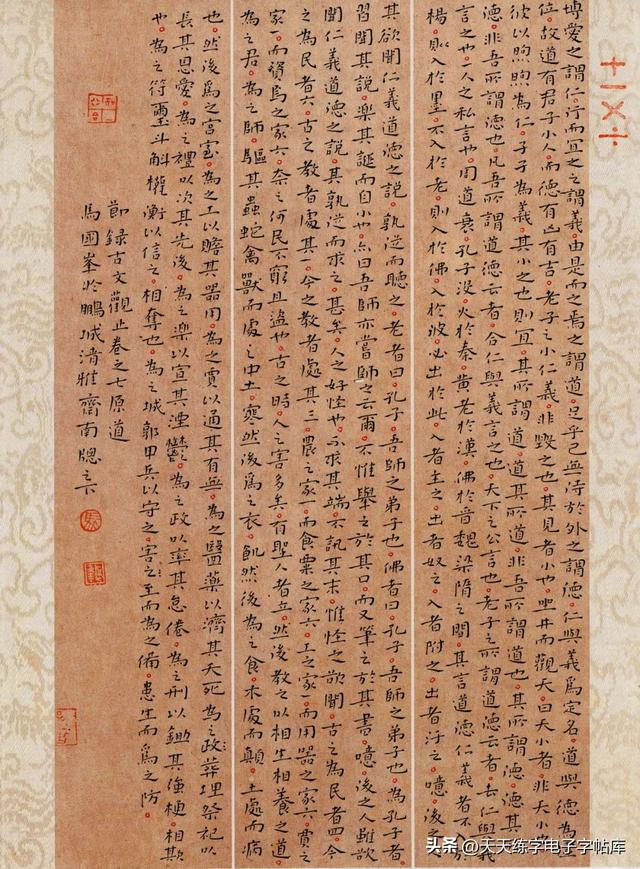 博愛之謂仁。行而宜之之謂義。由是而之焉之謂道。足乎己無待於外之謂德。仁與義爲定名。道與德爲
位。故道有君子小人。而德有凶有吉。老子之小仁義。非毀之也。其見者小也。坐井而觀天。曰天小者。非天小
彼以煦煦為仁。孑孑為義。其小之也則宜。其所謂道。道其所道。非吾所謂道也。其所謂德。德其
德。非吾所謂德也。凡吾所謂道德云者。合仁與義言之也。天下之公言也。老子之所謂道德云者。去仁與義
言之也。一人之私言也。周道衰。孔子沒。火於秦。黃老於漢。佛於晉魏梁隋之間。其言道德仁義者。不入於
楊。則入於墨。不入於老。則入於佛。入於彼。必出於此。入者主之。出者奴之。入者附之。出者汙之。噫。後之
其欲聞仁義道德之說。孰從而聽之。老者曰。孔子。吾師之弟子也。佛者曰。孔子。吾師之弟子也。為孔子者
習聞其說。樂其誕而自小也。亦曰吾師亦嘗師之云爾。不惟舉之於其口。而又筆之於其書。噫。後之人雖欲
聞仁義道德之說。其孰從而求之。甚矣。人之好怪也。不求其端。不訊其末。惟怪之欲聞。古之為民者四。今
之為民者六。古之教者處其一。今之教者處其三。農之家一。而食粟之家六。工之家一。而用器之家六。賈之
家一。而資焉之家六。奈之何民不窮且盜也。古之時。人之害多矣。有聖人者立。然後教之以相生相養之道
為之君。為之師。驅其蟲蛇禽獸而處之中土。寒然後爲之衣。飢然後為之食。木處而顛。土處而病
也。然後爲之宮室。為之工以贍其器用。為之賈以通其有無。為之醫藥以濟其夭死。為之政葬埋祭祀以
長其恩愛。為之禮以次其先後。為之樂以宣其湮鬱。為之政以率其怠倦。為之刑以鋤其強梗。相欺
也。為之符璽斗斛權衡以信之。相奪也。為之城郭甲兵以守之。害之至而為之備。患生而爲之防。
節錄古文觀止卷之七原道
馬國峯於鵬城清雅齋南牕之下
头条@天天练字电子字帖库